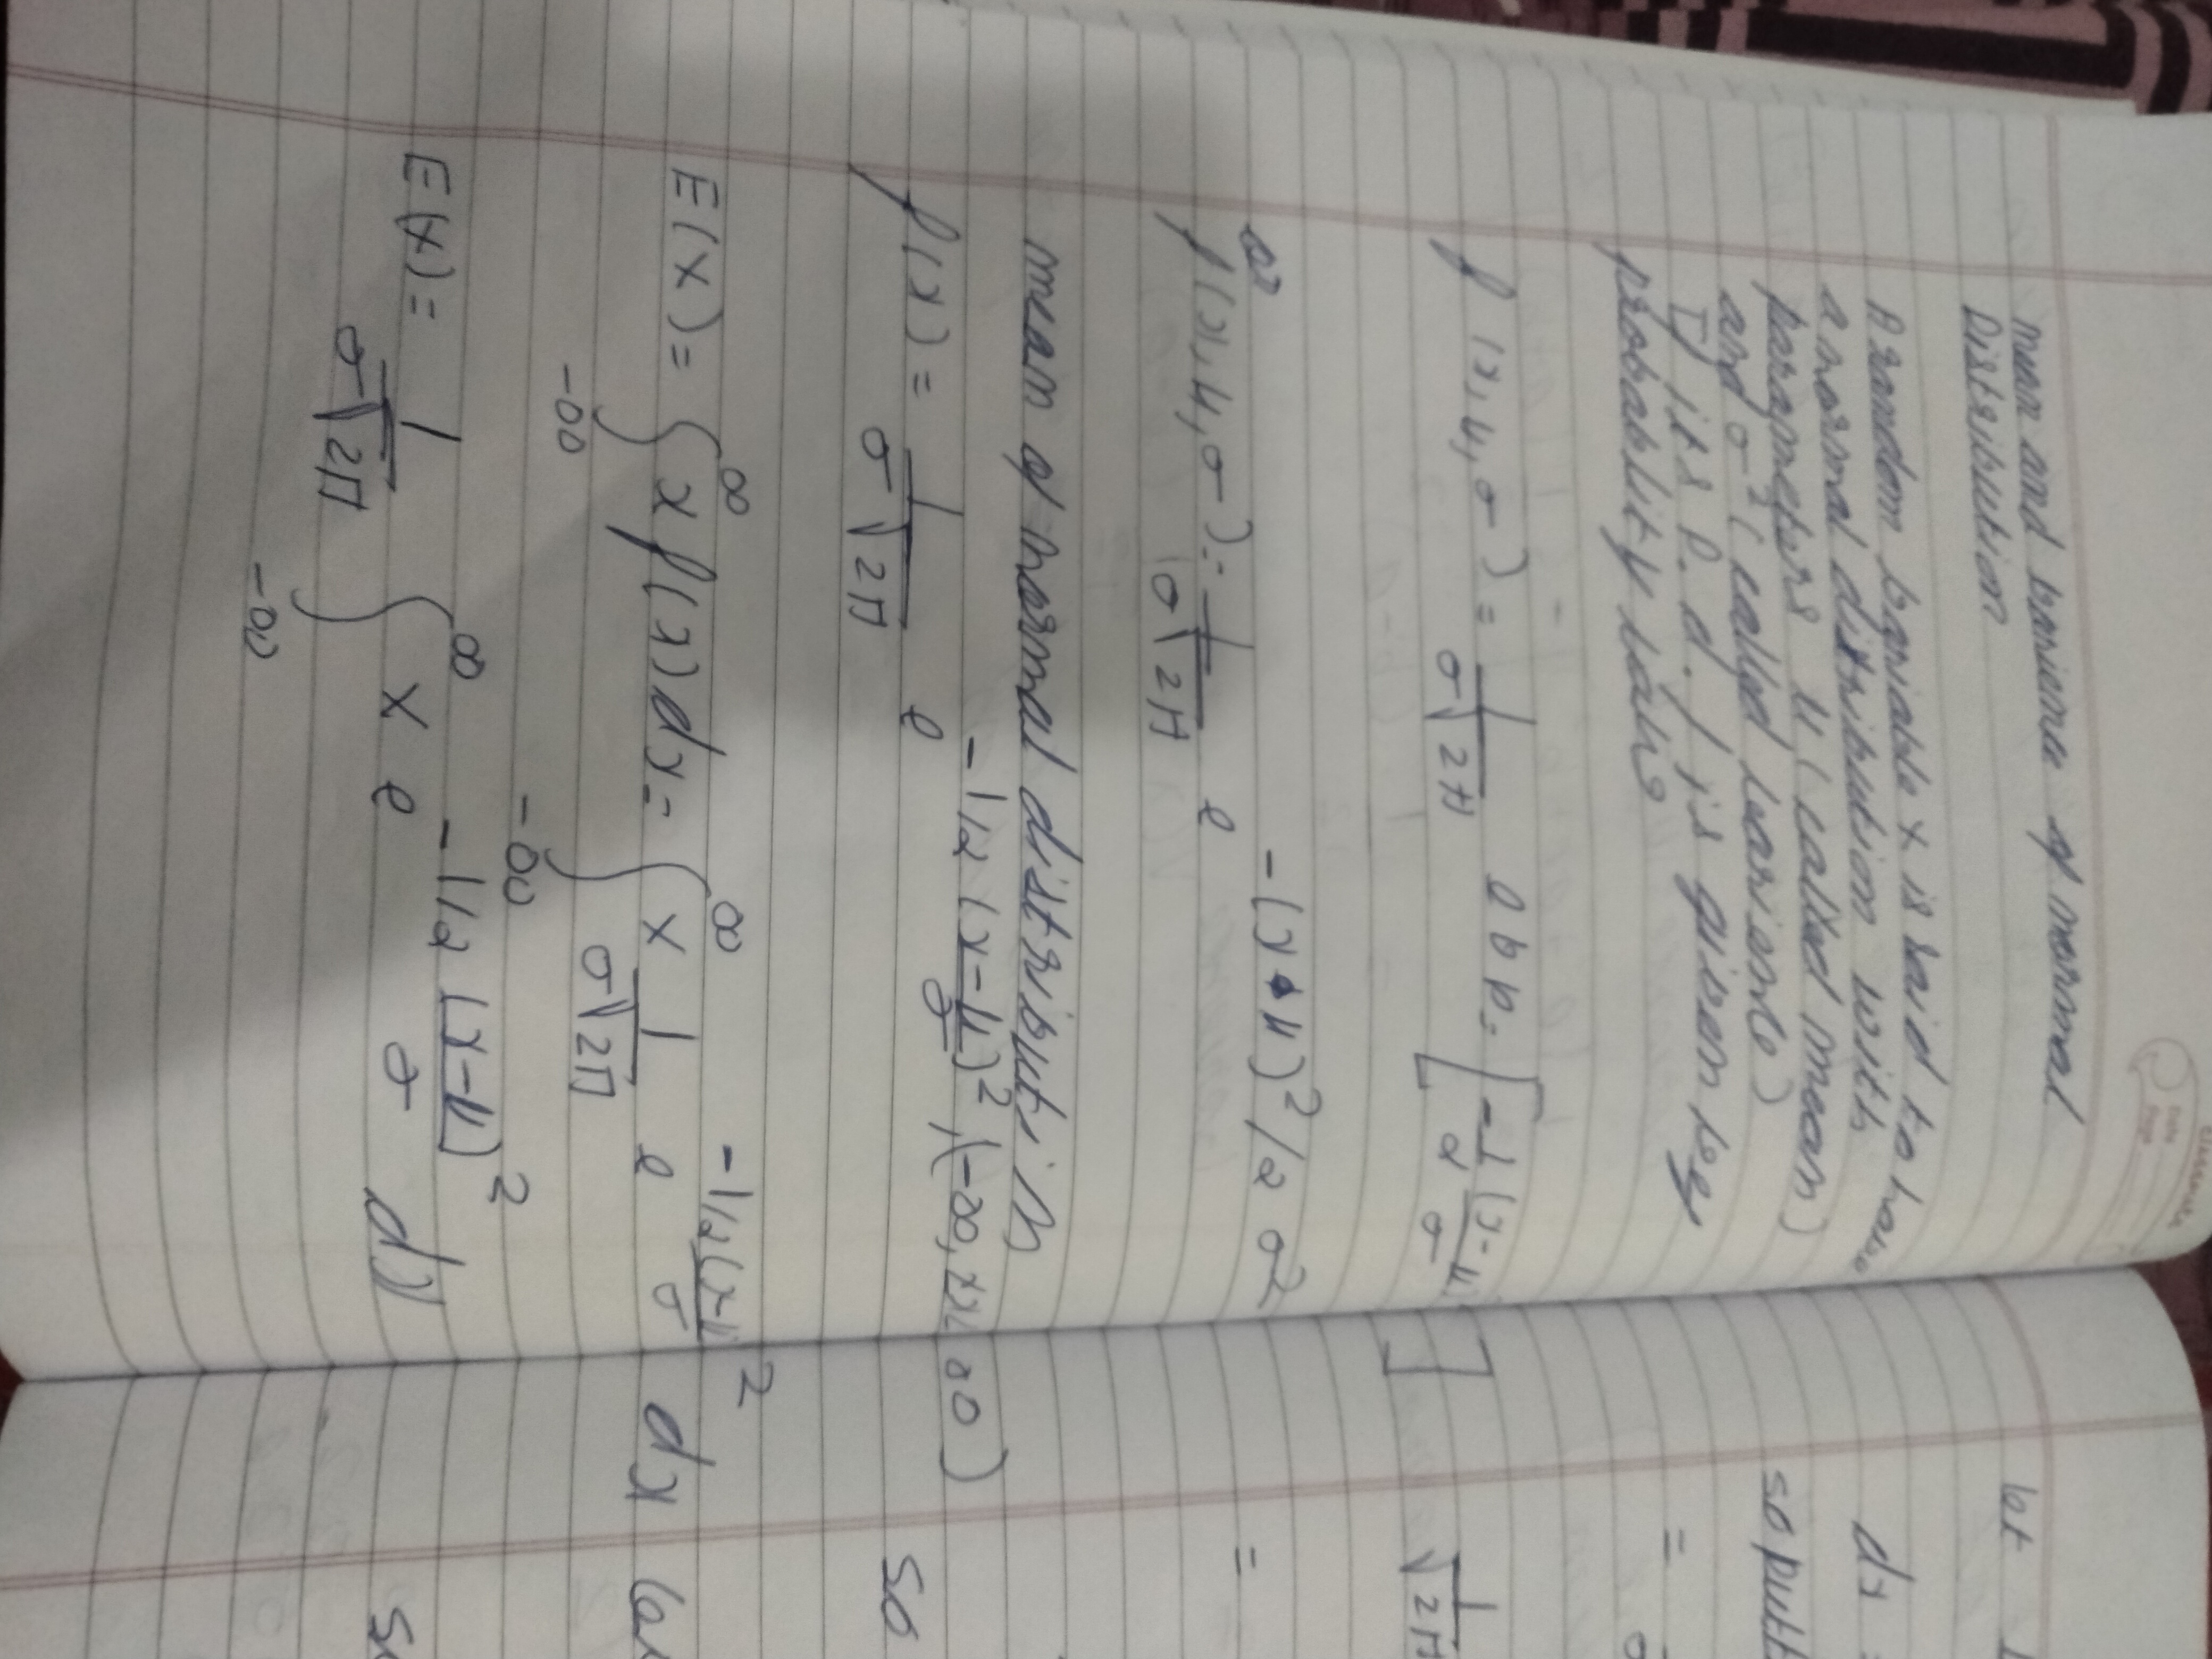 mean and variance of normal
Distribution
A random variable x is said to have
a normal distribution with
parameters μ (called mean)
and σ² (called varience)
If its P.d.f is given by
probablity laws
f(x, μ, σ) = 1/σ√2π exp. [-1/2 (x-μ)/σ]
or
f(x, μ, σ) = 1/σ√2π e -(x-μ)²/2σ²
mean of normal distribution
f(x) = 1/σ√2π e -1/2 (x-μ/σ)², (-∞, +∞)
E(x) = ∫ -∞ ∞ x f(x)dx = ∫ -∞ ∞ x 1/σ√2π e -1/2 (x-μ/σ)² dx
E(x) = 1/σ√2π ∫ -∞ ∞ x e -1/2 (x-μ/σ)² dx
let
so putt
=
1/√2π
=
so